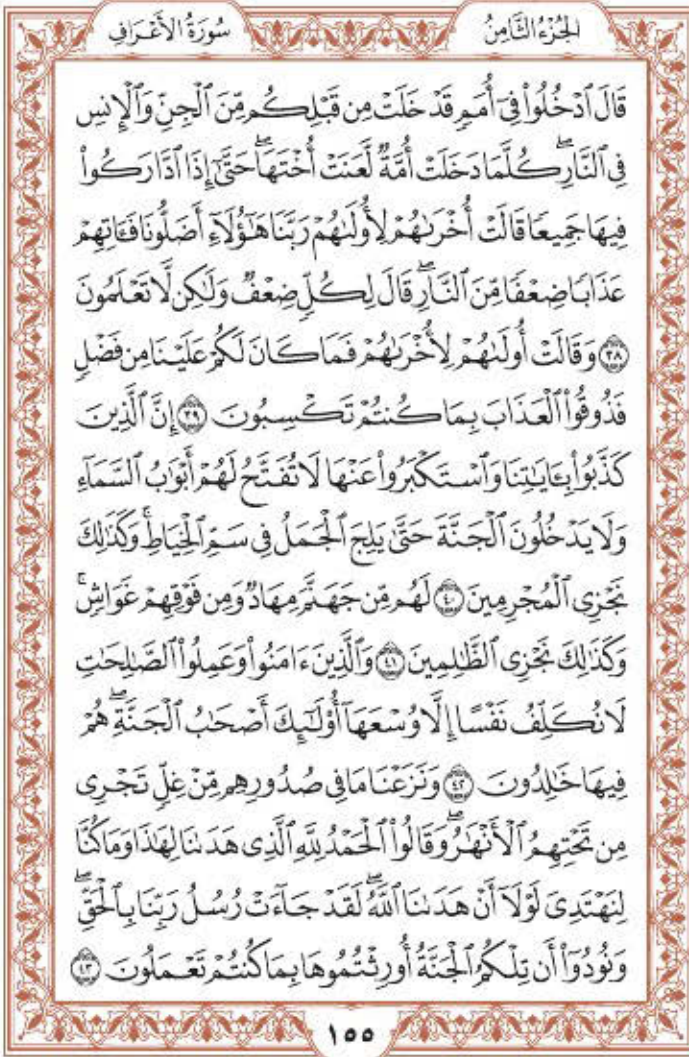 الجُزْءُ الثَّامِنُ سُورَةُ الأَعْرَافِ
قَالَ ٱدۡخُلُواْ فِيٓ أُمَمٖ قَدۡ خَلَتۡ مِن قَبۡلِكُم مِّنَ ٱلۡجِنِّ وَٱلۡإِنسِ
فِي ٱلنَّارِۖ كُلَّمَا دَخَلَتۡ أُمَّةٞ لَّعَنَتۡ أُخۡتَهَاۖ حَتَّىٰٓ إِذَا ٱدَّارَكُواْ
فِيهَا جَمِيعٗا قَالَتۡ أُخۡرَىٰهُمۡ لِأُولَىٰهُمۡ رَبَّنَا هَٰٓؤُلَآءِ أَضَلُّونَا فَـَٔاتِهِمۡ
عَذَابٗا ضِعۡفٗا مِّنَ ٱلنَّارِۖ قَالَ لِكُلّٖ ضِعۡفٞ وَلَٰكِن لَّا تَعۡلَمُونَ
٣٨ وَقَالَتۡ أُولَىٰهُمۡ لِأُخۡرَىٰهُمۡ فَمَا كَانَ لَكُمۡ عَلَيۡنَا مِن فَضۡلٖ
فَذُوقُواْ ٱلۡعَذَابَ بِمَا كُنتُمۡ تَكۡسِبُونَ ٣٩ إِنَّ ٱلَّذِينَ
كَذَّبُواْ بِـَٔايَٰتِنَا وَٱسۡتَكۡبَرُواْ عَنۡهَا لَا تُفَتَّحُ لَهُمۡ أَبۡوَٰبُ ٱلسَّمَآءِ
وَلَا يَدۡخُلُونَ ٱلۡجَنَّةَ حَتَّىٰ يَلِجَ ٱلۡجَمَلُ فِي سَمِّ ٱلۡخِيَاطِۚ وَكَذَٰلِكَ
نَجۡزِي ٱلۡمُجۡرِمِينَ ٤٠ لَهُم مِّن جَهَنَّمَ مِهَادٞ وَمِن فَوۡقِهِمۡ غَوَاشٖۚ
وَكَذَٰلِكَ نَجۡزِي ٱلظَّٰلِمِينَ ٤١ وَٱلَّذِينَ ءَامَنُواْ وَعَمِلُواْ ٱلصَّٰلِحَٰتِ
لَا نُكَلِّفُ نَفۡسًا إِلَّا وُسۡعَهَآ أُوْلَٰٓئِكَ أَصۡحَٰبُ ٱلۡجَنَّةِۖ هُمۡ
فِيهَا خَٰلِدُونَ ٤٢ وَنَزَعۡنَا مَا فِي صُدُورِهِم مِّنۡ غِلّٖ تَجۡرِي
مِن تَحۡتِهِمُ ٱلۡأَنۡهَٰرُۖ وَقَالُواْ ٱلۡحَمۡدُ لِلَّهِ ٱلَّذِي هَدَىٰنَا لِهَٰذَا وَمَا كُنَّا
لِنَهۡتَدِيَ لَوۡلَآ أَنۡ هَدَىٰنَا ٱللَّهُۖ لَقَدۡ جَآءَتۡ رُسُلُ رَبِّنَا بِٱلۡحَقِّۖ
وَنُودُوٓاْ أَن تِلۡكُمُ ٱلۡجَنَّةُ أُورِثۡتُمُوهَا بِمَا كُنتُمۡ تَعۡمَلُونَ ٤٣
١٥٥